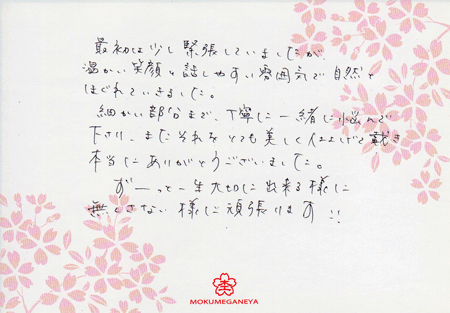 最初は少し緊張していましたが、
温かい笑顔と話しやすい雰囲気で自然と
ほぐれていきました。
細かい部分まで、丁寧に一緒に悩んで
下さり、またそれをとても美しく仕上げて戴き
本当にありがとうございました。
ずーっと一生大切に出来る様に
無くさない様に頑張ります!!
MOKUMEGANEYA